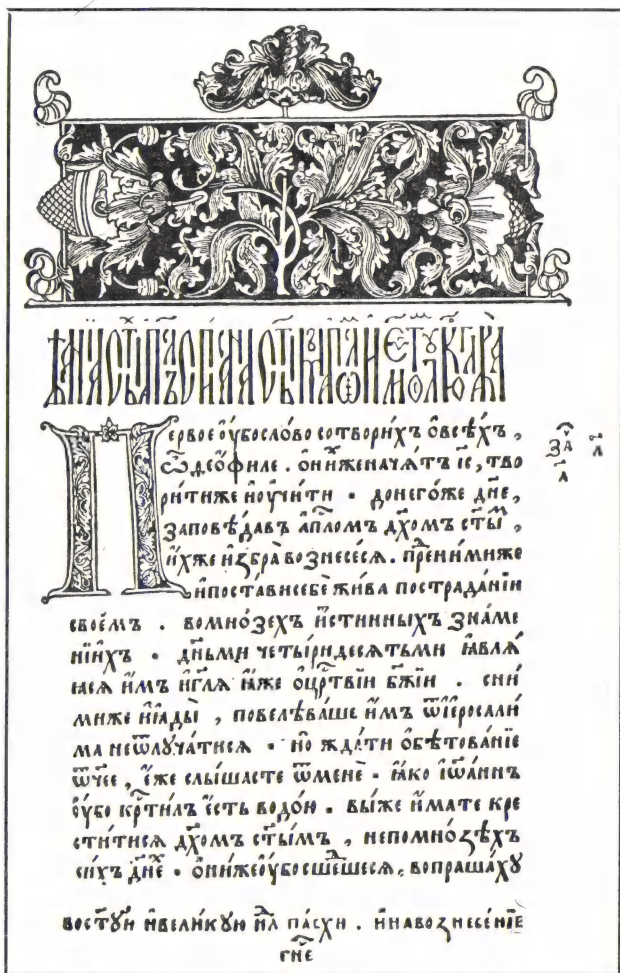 Первое оу҆бо сло́во сотвори́хъ ѡ҆всѣ́хъ,
ѽдео́филе. ѡ҆ни́хже нача́тъ і҆с҃, тво
ри́тиже и҆оу҆чи́ти. донего́же дн҃е,
заповѣ́давъ а҆пⷭ҇ломъ дх҃омъ ст҃ыⷨ,
и҆́хже и҆збра̀ вознесе́ся. преⷣни́миже
и҆поста́ви себѐ жи́ва пострада́нїи
свое́мъ. вомно́зехъ и҆́стинныхъ зна́ме
нїихъ. дн҃ьми четы́ридесятьми ꙗ҆вля́
ꙗся и҆̀мъ и҆гл҃я ꙗ҆́же ѡ҆црⷭ҇твїи бж҃їи. сни́
миже и҆ꙗды̀, повелѣва́ше и҆̀мъ ѿі҆еросали́
ма неѿлꙋча́тися. но жда́ти ѡ҆бѣтова́нїе
ѿч҃ее, є҆́же слы́шасте ѿменѐ. ꙗ҆́ко і҆ѡа́ннъ
оу҆́бо крⷭ҇ти́лъ є҆́сть водо́ю. вы́же и҆́мате кре
сти́тися дх҃омъ ст҃ы́мъ, непомно́зѣхъ
си́хъ дн҃еⷯ. ѡ҆ни́же оу҆́бо сшеⷣшеся, вопраша́хꙋ
за҃ч а҃ л҃
востꙋ́ю и҆вели́кꙋю нⷣл҃ю па́схи. и҆навознесе́нїе
гн҃е